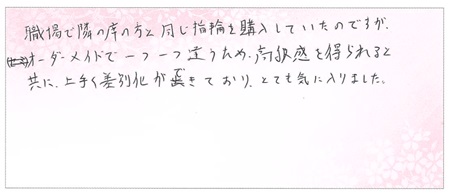 職場で隣の席の方と同じ指輪を購入していたのですが、
オーダーメイドで一つ一つ違うため、高級感を得られると
共に、上手く差別化ができており、とても気に入りました。